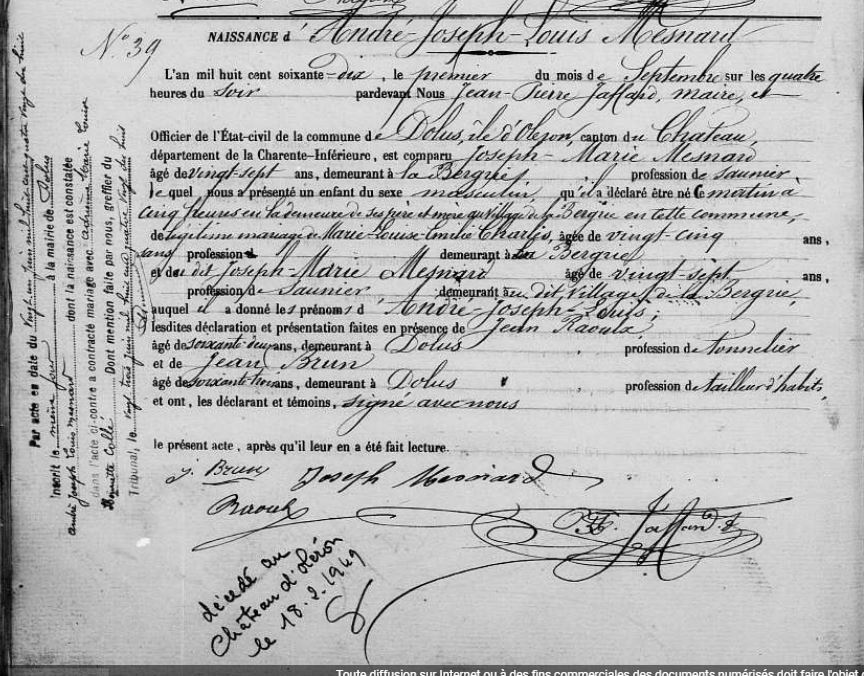 N° 39
NAISSANCE d'André-Joseph-Louis Mesnard
L'an mil huit cent soixante-dix, le premier du mois de Septembre sur les quatre
heures du soir pardevant Nous Jean-Pierre Jaffard, maire, et
Officier de l'État-civil de la commune de Dolus, île d'Oleron, canton du Chateau,
département de la Charente-Inférieure, est comparu Joseph-Marie Mesnard
âgé de vingt-sept ans, demeurant à la Bergrie profession de saunier
lequel nous a présenté un enfant du sexe masculin, qu'il a déclaré être né ce matin à
cinq heures en la demeure de ses père et mère au village de la Bergrie en cette commune,
de légitime mariage de Marie-Louise-Emilie Charles, âgée de vingt-cinq ans,
sans profession demeurant à la Bergrie
et du dit Joseph-Marie Mesnard âgé de vingt-sept ans,
profession de saunier demeurant au dit village de la Bergrie
auquel il a donné les prénoms d'André-Joseph-Louis;
lesdites déclaration et présentation faites en présence de Jean Raoulx
âgé de soixante-deux ans, demeurant à Dolus profession de tonnelier
et de Jean Brun
âgé de soixante-trois ans, demeurant à Dolus profession de tailleur d'habits,
et ont, les déclarant et témoins, signé avec nous
le présent acte, après qu'il leur en a été fait lecture.
j. Brun Joseph Mesnard
Raoulx Jaffard
décédé au
Château d'Oléron
le 18.2.1949
Par acte en date du vingt un juin mil huit cent quatre vingt dix huit
Inscrit le même jour à la mairie de Dolus
André Joseph Louis Mesnard dont la naissance est constatée
dans l'acte ci-contre a contracté mariage avec Marie Louise
Collé. Dont mention faite par nous, greffier du
Tribunal, le vingt trois juin mil huit cent quatre vingt dix huit
Toute diffusion sur Internet ou à des fins commerciales des documents numérisés doit faire l'objet